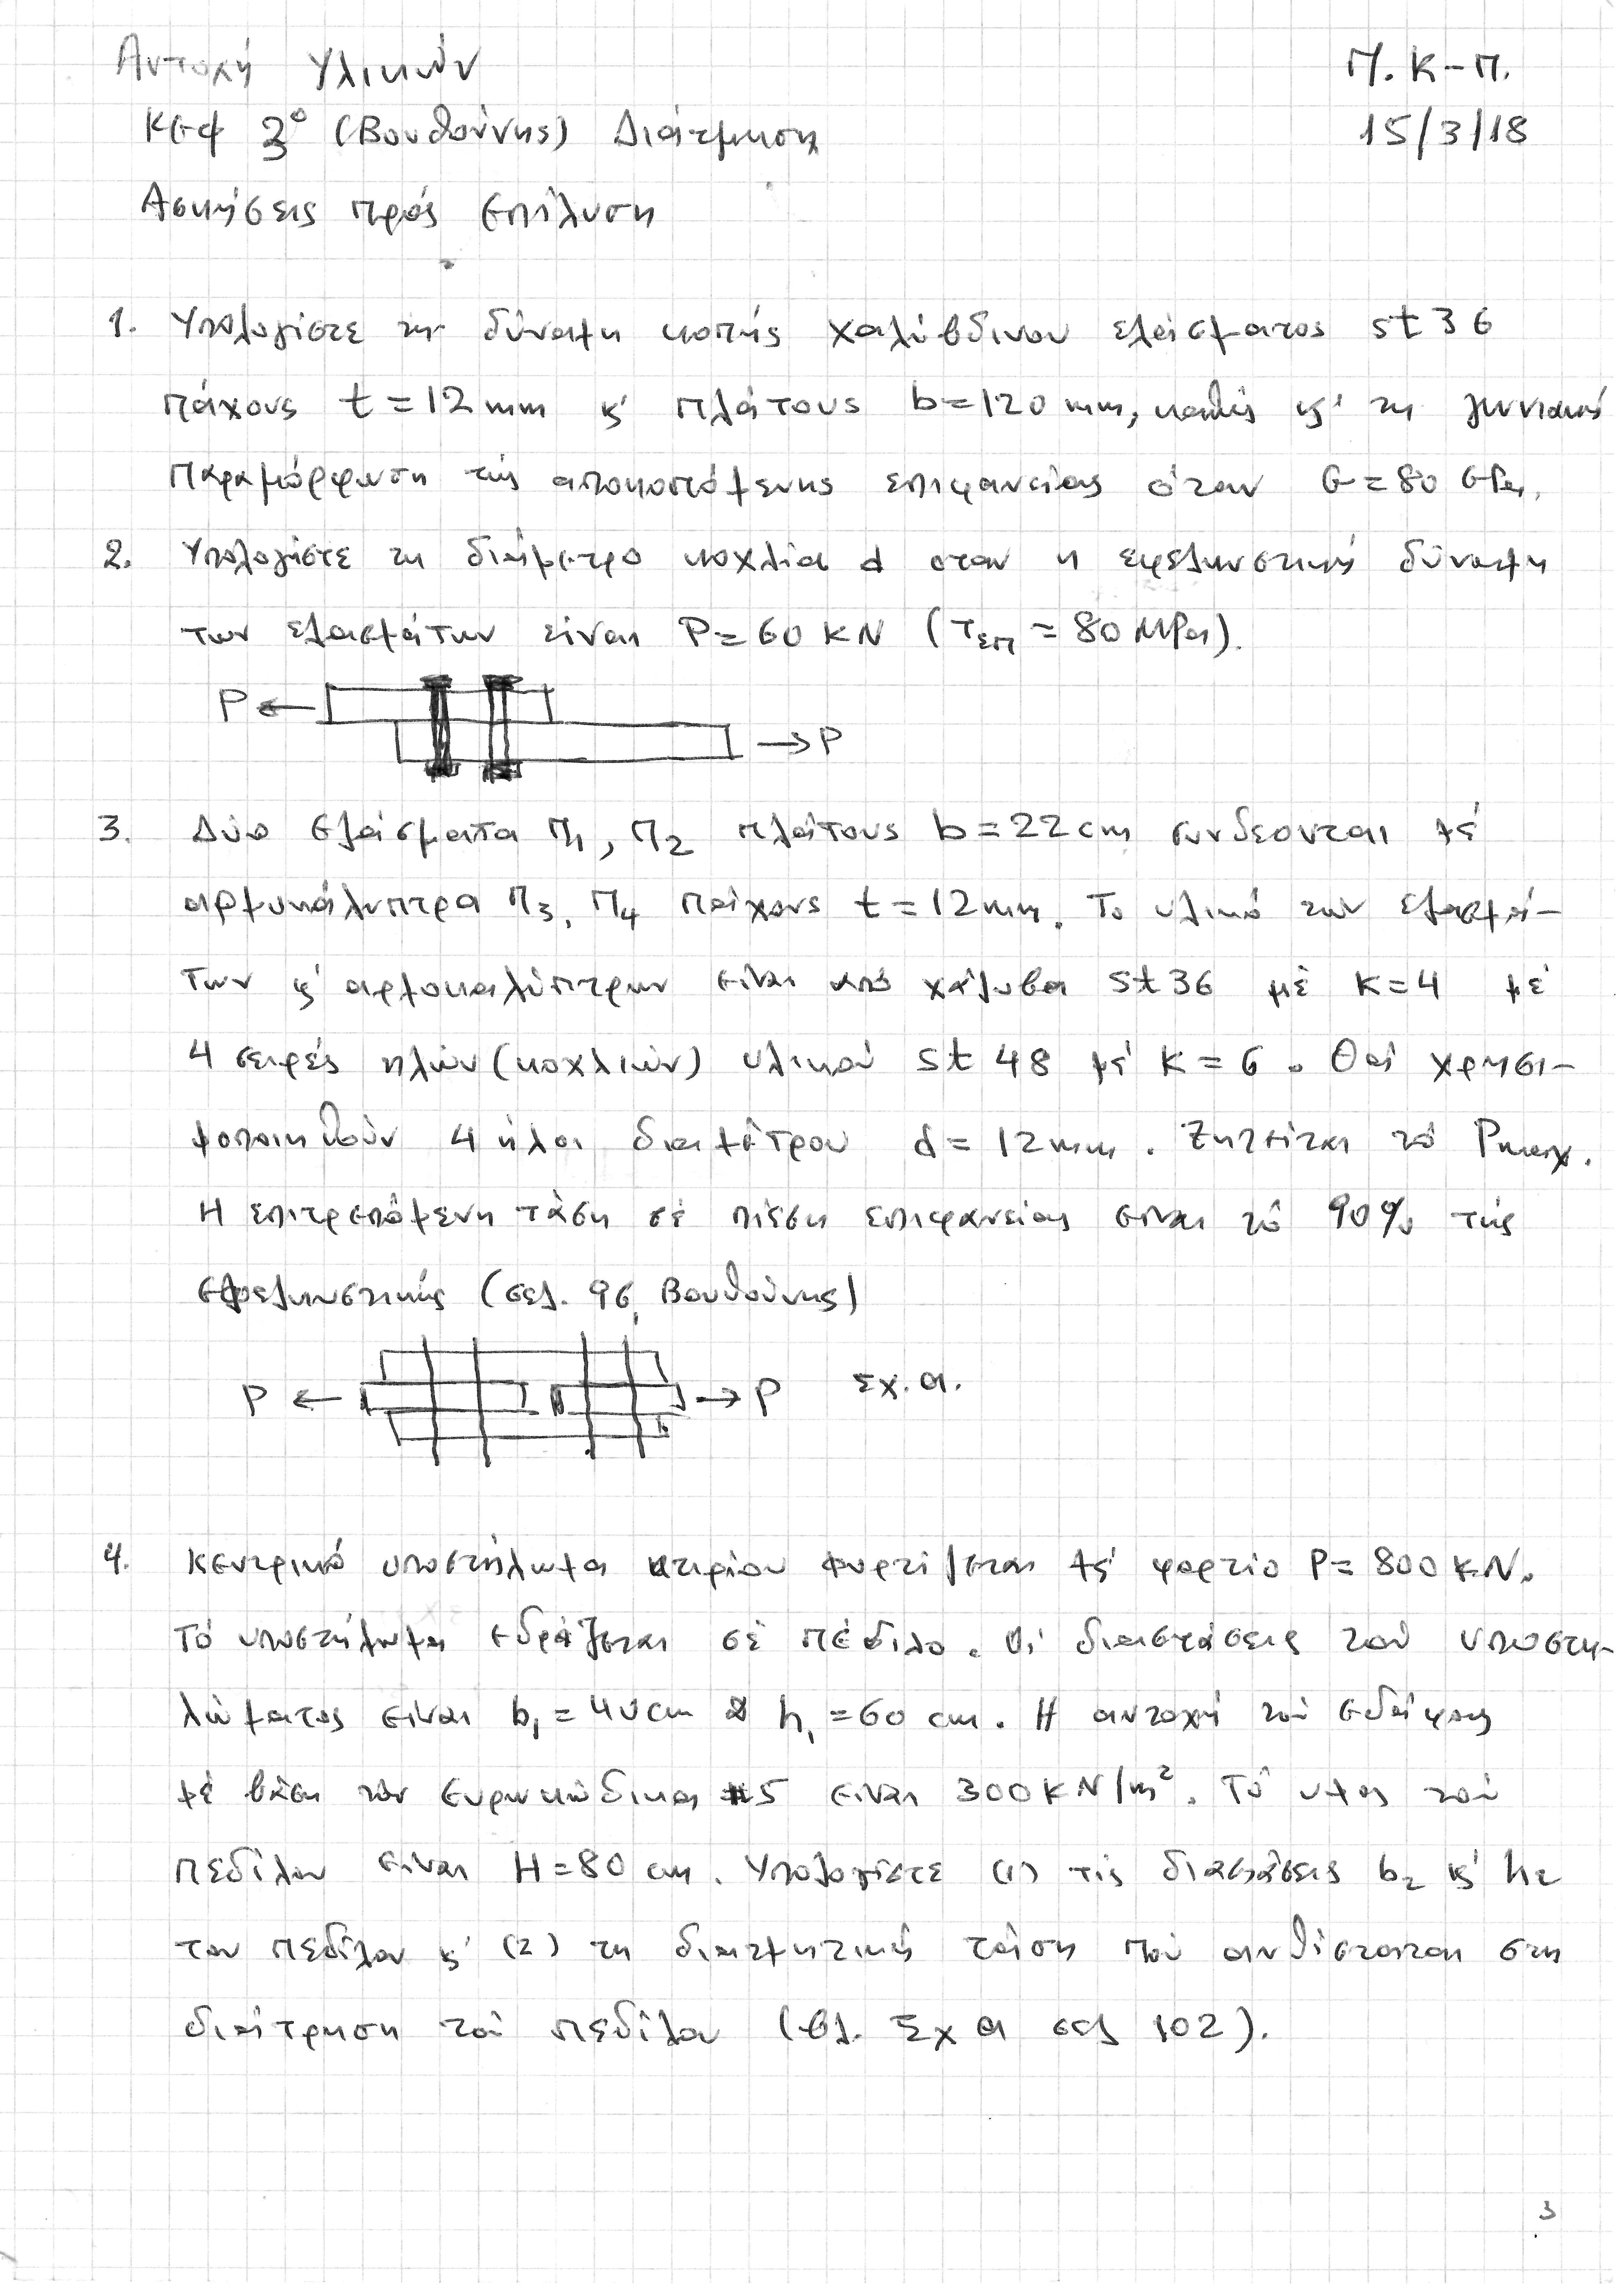 Αντοχή Υλικών
Π. Κ-Π.
Κεφ 3º (Βουθούνης) Διάτμηση
15/3/18
Ασκήσεις πρός επίλυση
1. Υπολογίστε τη δύναμη κοπής χαλύβδινου ελάσματος st36
πάχους t=12mm κ' πλάτους b=120mm, καθώς κ' τη γωνιακή
παραμόρφωση τής αποκοπτόμενης επιφανείας όταν G=80 GPa.
2. Υπολογήστε τη διάμετρο κοχλία d οταν η εφελκυστική δύναμη
των ελασμάτων είναι P=60 KN (τεπ = 80 MPa).
P
P
3. Δύο ελάσματα Π1, Π2 πλάτους b=22cm συνδεονται μέ
αρμοκάλυπτρα Π3, Π4 πάχους t=12mm. Το υλικό των ελασμά-
των κ' αρμοκαλύπτρων είναι από χάλυβα st36 μέ K=4 μέ
4 σειρές ηλών (κοχλιών) υλικού st 48 μέ K=6. Θά χρησι-
μοποιηθούν 4 ήλοι διαμέτρου d=12mm. Ζητείται τό Pmax.
Η επιτρεπόμενη τάση σέ πίεση επιφανείας είναι τό 90% τής
εφελκυστικής (σελ. 96, Βουθούνης)
P
P
Σχ. α.
4. Κεντρικό υποστήλωμα κτιρίου φορτίζεται μέ φορτίο P=800 KN.
Τό υποστήλωμα εδράζεται σέ πέδιλο. Οι διαστάσεις τού υποστη-
λώματος είναι b1=40cm & h1=60 cm. Η αντοχή τού εδάφους
μέ βάση τόν ευρωκώδικα #5 είναι 300KN/m². Τό υψος τού
πεδίλου είναι H=80 cm. Υπολογίστε (1) τίς διαστάσεις b2 κ' h2
του πεδίλου κ' (2) τη διατμητική τάση πού ανθίσταται στη
διάτρηση τού πεδίλου (βλ. Σχ α σελ 102).
3